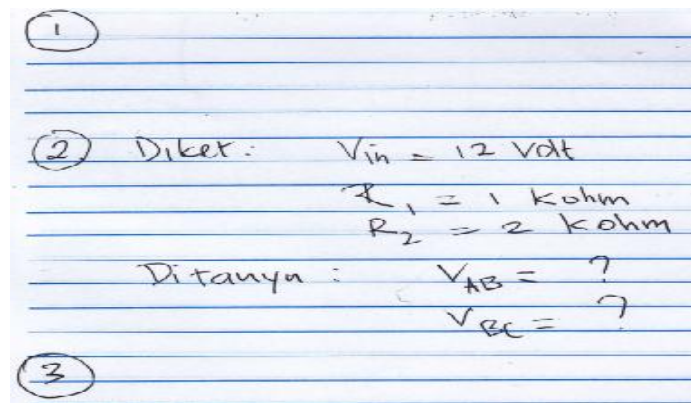 1
2 Diket: Vin = 12 Volt
R1 = 1 kohm
R2 = 2 kohm
Ditanya : VAB = ?
VBC = ?
3